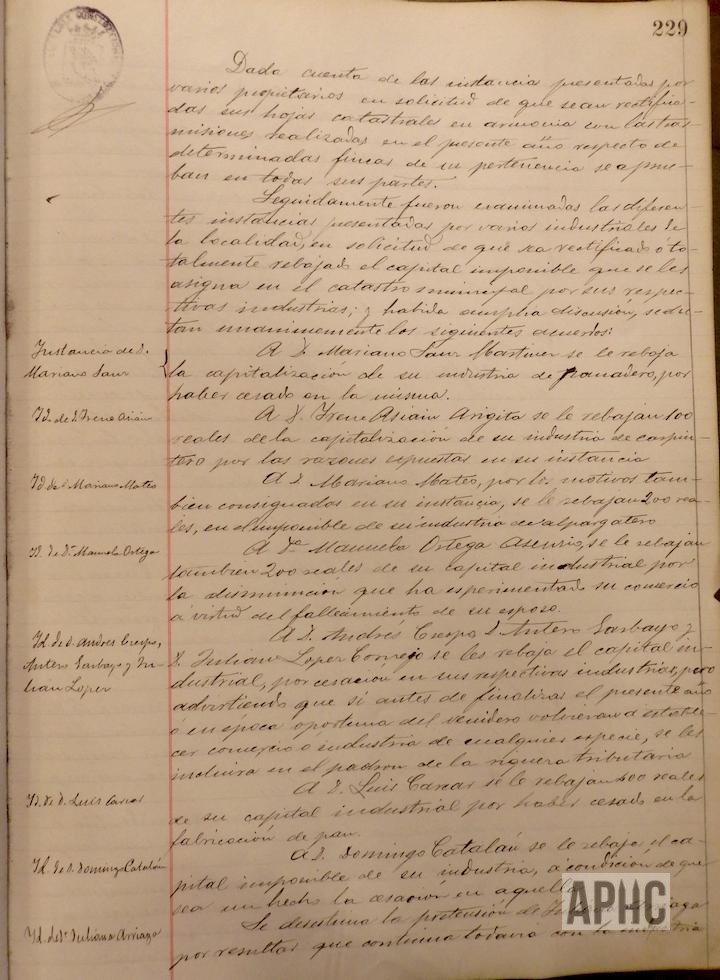 229
Dada cuenta de las instancia presentadas por
varios propietarios en solicitud de que sean rectifica-
das sus hojas catastrales en armonia con las tras-
misiones realizadas en el presente año respecto de
determinadas fincas de su pertenencia se aprue-
ban en todas sus partes.
Seguidamente fueron examinadas las diferen-
tes instancias presentadas por varios industriales de
la localidad, en solicitud de que sea rectificado ó to-
talmente rebajado el capital imponible que se les
asigna en el catastro municipal por sus respec-
tivas industrias; y habida amplia discusión, se dic-
tan unanimemente los siguientes acuerdos:
Instancia de D.
Mariano Sanz
A D. Mariano Sanz Martinez se le rebaja
la capitalización de su industria de panadero, por
haber cesado en la misma.
Id. de D. Irene Asiain
A D. Irene Asiain Arigita se le rebajan 100
reales de la capitalización de su industria de carpin-
tero por las razones expuestas en su instancia
Id de D. Mariano Mateo
A D. Mariano Mateo, por los motivos tam-
bien consignados en su instancia, se le rebajan 200 rea-
les, en el imponible de su industria de alpargatero
Id. de Dª Manuela Ortega
A Dª Manuela Ortega Asensio, se le rebajan
tambien 200 reales de su capital industrial por
la disminución que ha esperimentado su comercio
á virtud del fallecimiento de su esposo.
Id. de D. Andrés Crespo,
Antero Garbayo y Ju-
lian Lopez
A D. Andrés Crespo, D Antero Garbayo y
D. Julian Lopez Cornejo se les rebaja el capital in-
dustrial, por cesación en sus respectivas industrias, pero
advirtiendo que si antes de finalizar el presente año
ó en época oportuna del venidero volvieran á estable-
cer comercio ó industria de cualquier especie, se les
incluira en el padron de la riqueza tributaria
Id. de D. Luis Carcar
A D. Luis Carcar se le rebajan 400 reales
de su capital industrial por haber cesado en la
fabricación de pan.
Id. de D. Domingo Catalán
A D. Domingo Catalán se le rebaja el ca-
pital imponible de su industria, á condición de que
sea un hecho la cesación en aquella
Id. de Dª Juliana Arriaga
Se desestima la pretensión de Juliana Arriaga
por resultar que continua todavia con la industria
APHC